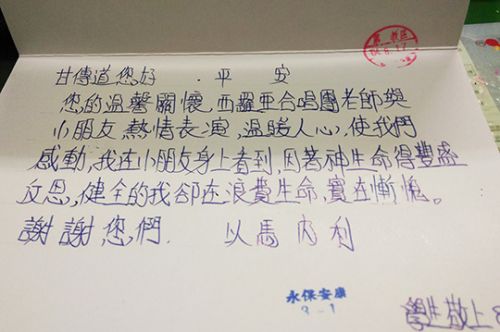 甘傳道您好．平安
您的溫馨關懷，西羅亞合唱團老師與
小朋友熱情表演，溫暖人心，使我們
感動，我在小朋友身上看到，因著神生命得豐盛
反思，健全的我卻在浪費生命，實在慚愧。
謝謝您們． 以馬內利
永保安康
9-1
學生敬上